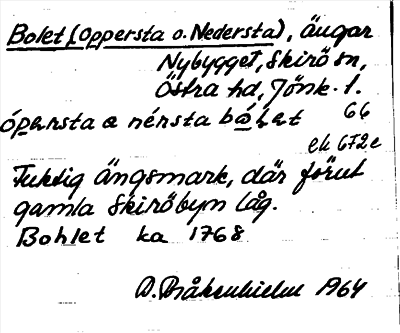 Bolet (Oppersta o. Nedersta), ängar
Nybygget, Skirö sn,
Östra hd, Jönk. l.
66
ópərsta ə nérsta bólət
ek 672 e
Fuktig ängsmark, där förut
gamla Skiröbyn låg.
Bohlet ka 1768
1964